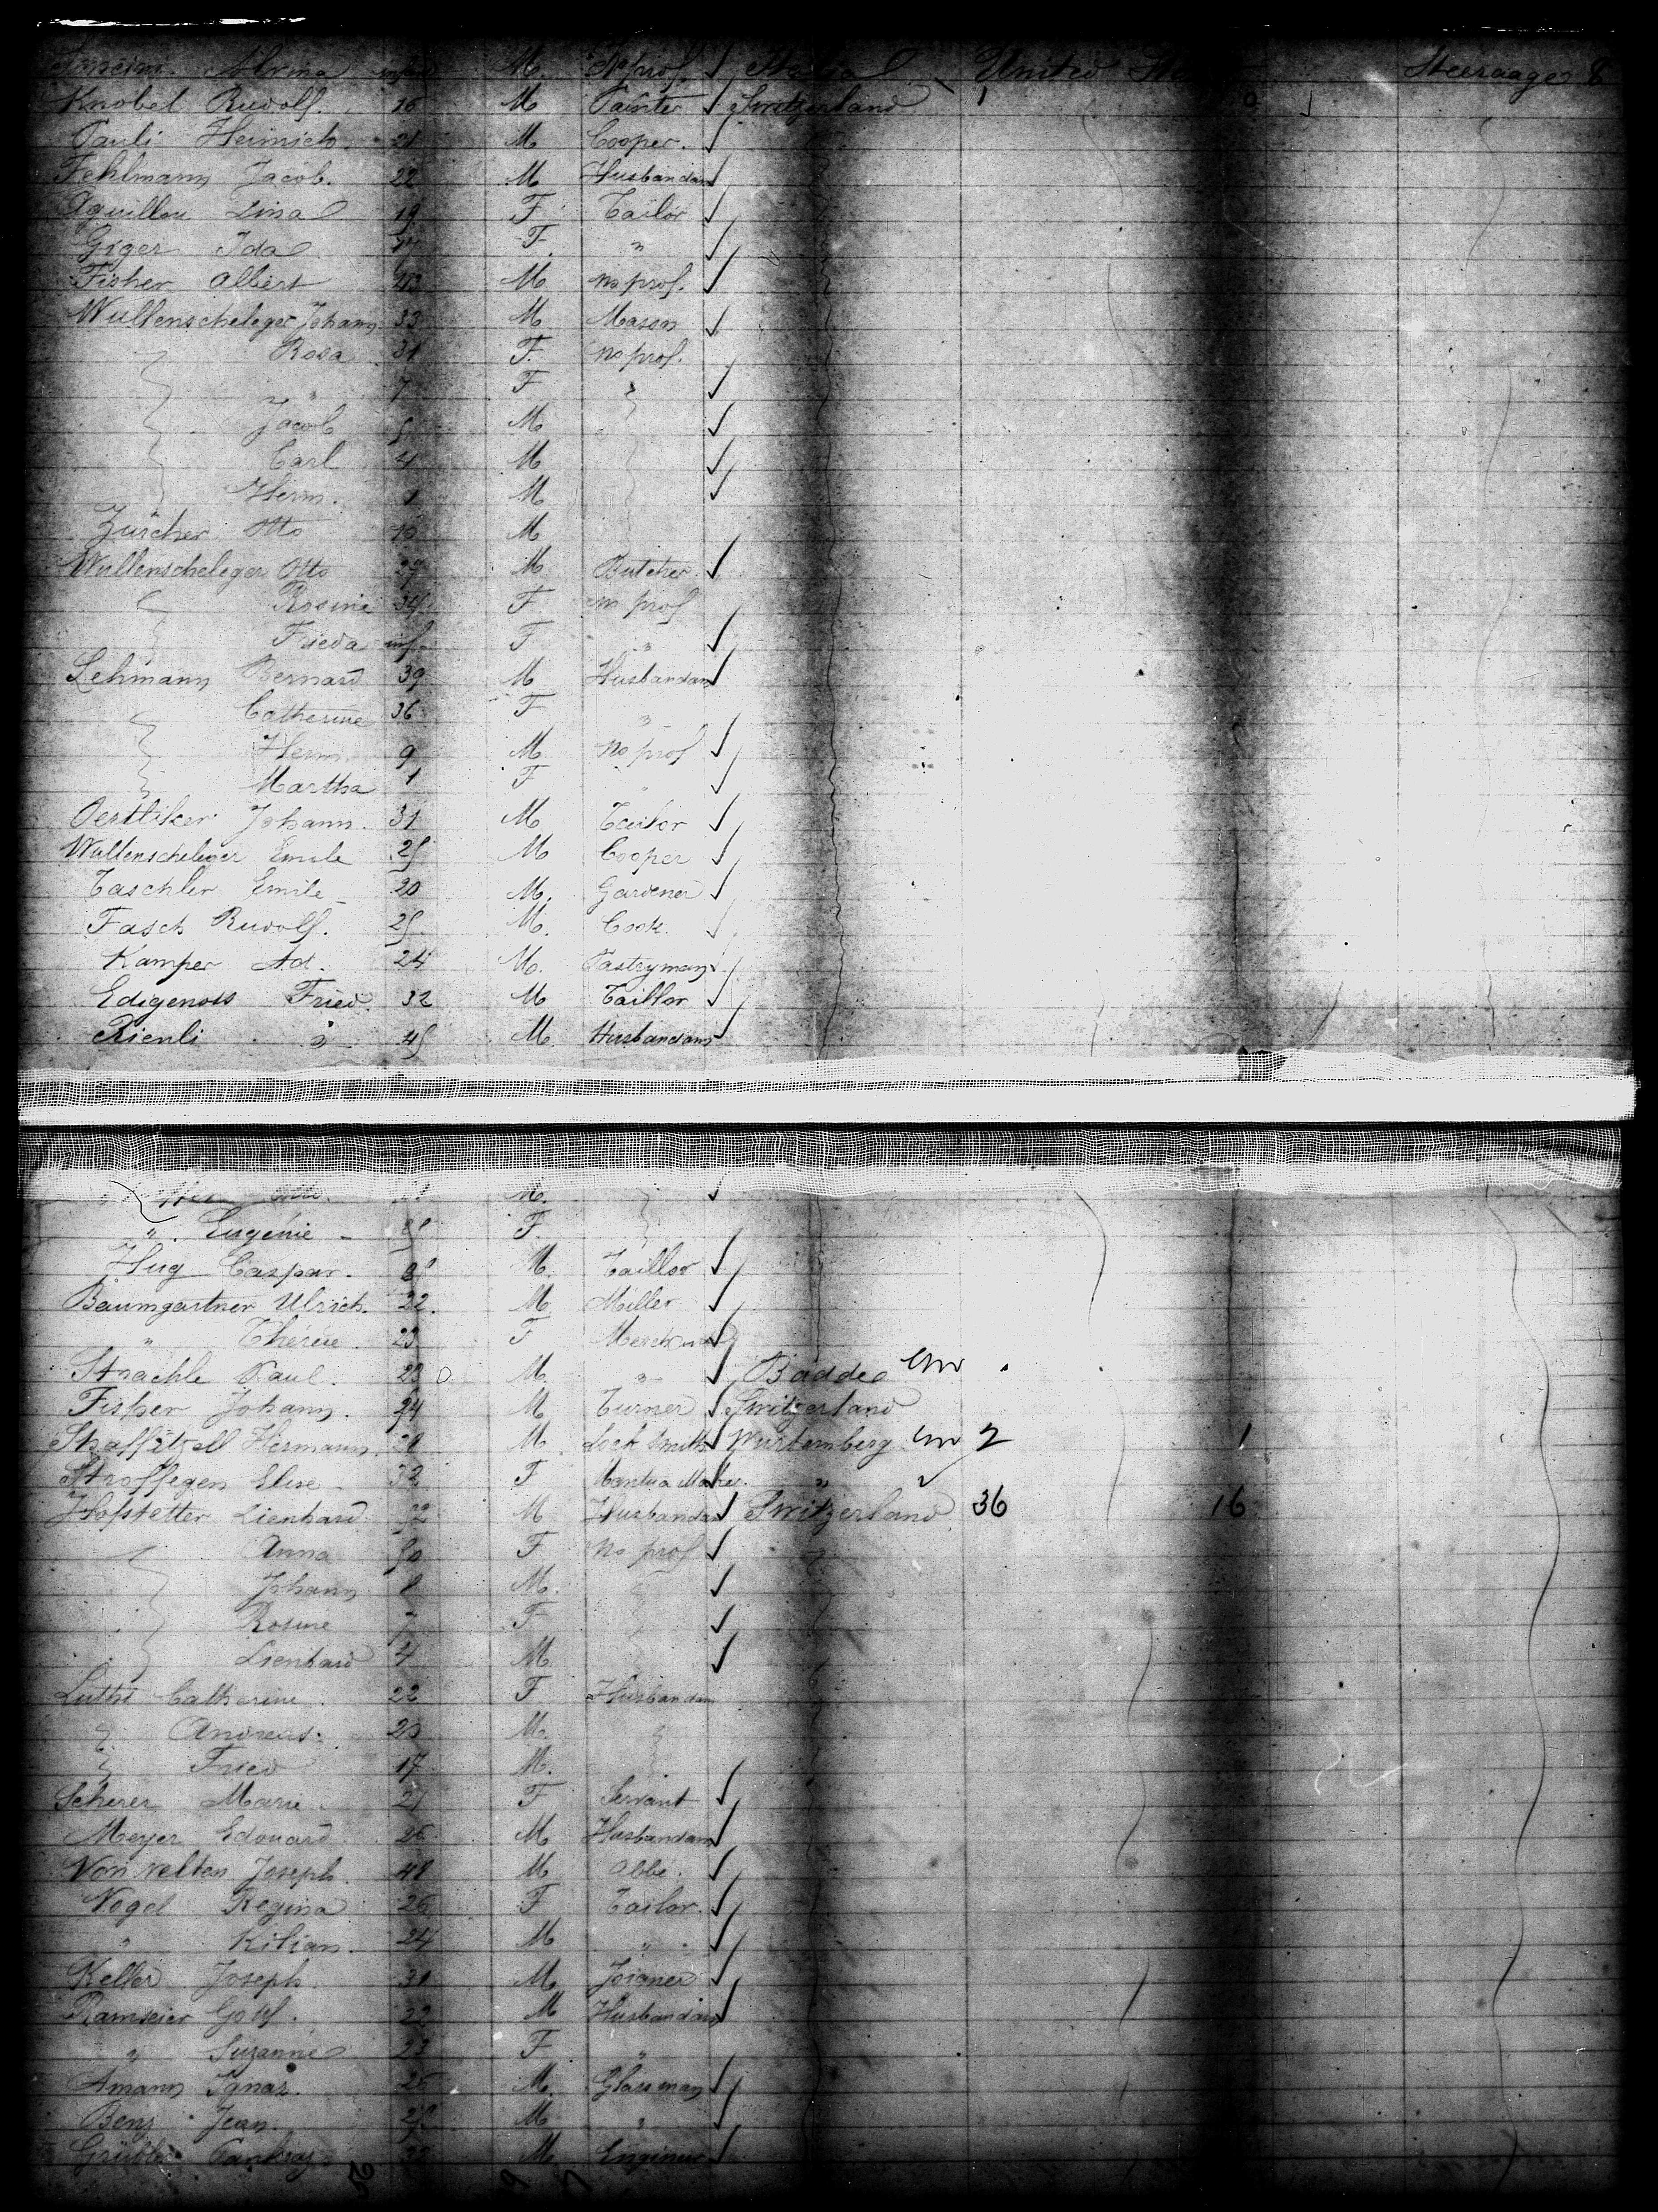 infant M. No prof. Italia United Steeraage 8
Knobel Rudolf. 26 M Painter Switzerland
Pauli Heinrich. 21 M Cooper.
Fehlmann Jacob. 22 M Husbandam
Aguillon Lina 19 F Tailor
Giger Ida F. "
Fisher Albert 43 M no prof.
Wullenscheleger Johann 33 M Mason
Rosa 31 F. no prof.
" 7 F "
Jacob 5 M
Carl 4 M
Herm. 1 M
Zuscher Otto M
Wullenscheleger Otto 27 M. Butcher
Rosine 34 F no prof
Frieda inf. F "
Lehmann Bernard 39 M Husbandam
Catherine 36 F "
Herm. 9 M no prof
Martha 1 F
Oertliker Johann. 31 M Tailor
Wullenscheleger Emile 25 M Cooper
Taschler Emile 20 M. Gardener
Fasch Rudolf. 25. M. Cook.
Kamper Ad. 24 M. Pastryman
Edigenoss Fried. 32 M Taillor
Rienli " 45 M. Husbandam
M.
" Eugénie F.
Hug Caspar. M. Taillor
Baumgartner Ulrich. 22. M. Miller
" Thérèse. 23 F
Straehle Paul. 23 M. " Baddeo
Fisher Johann. 24 M Turner Switzerland
Hermann. M. Lock Smith Wurtemberg 2 1
Stroffegen Elise 32 F Mantua Maker. "
Hofstetter Lienhard 52 M Husbandam Switzerland 36 16
Anna 50 F no prof
Johann 8 M.
Rosine 7 F
Lienhard 4 M
Luthi Catherine. 22 F Husbandam
Andreas. 20 M.
Fried 17 M.
Scherer Marie. 21 F Servant
Meyer Edouard. 26 M Husbandam
Von Velten Joseph. 48 M Abbé.
Vogel Regina 26 F Tailor.
" Kilian. 24 M "
Keller Joseph. 31 M Joigner
Ramseier Gottf. 22 M Husbandam
" Suzanne 23 F "
Amann Ignaz. 26 M. Glassman
Benz Jean. M "
M. Engineer